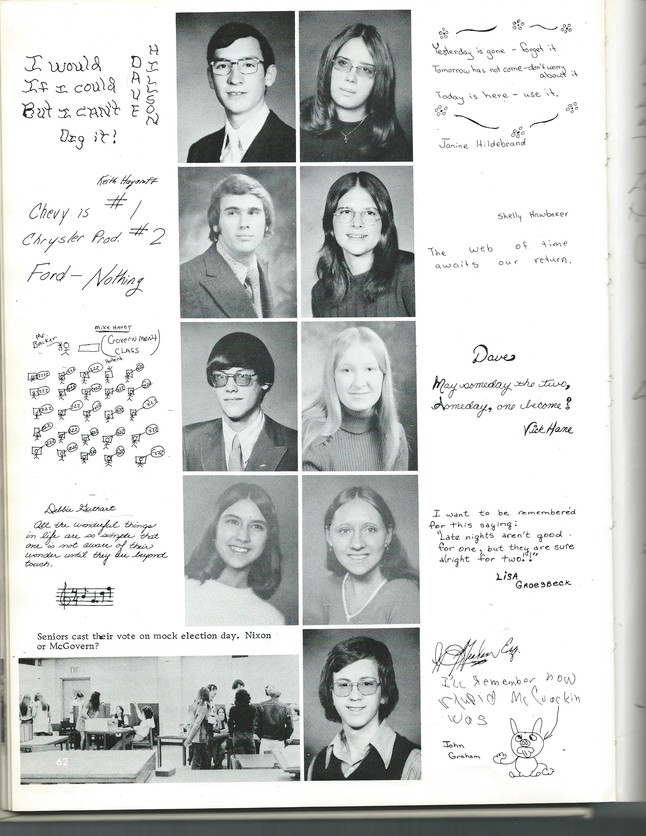 I would
If I could
But I CAN'T
Dig it!
DAVE
HILLSON
Yesterday is gone - forget it
Tomorrow has not come - don't worry
about it
Today is here - use it.
Janine Hildebrand
Keith Haycraft
Chevy is #1
Chrysler Prod. #2
Ford - Nothing
Shelly Hawbaker
The web of time
awaits our return.
MIKE HAVEY
Mr.
Backer
(Government
CLASS
Dave
May someday the two,
Someday, one become!
Vick Hane
Debbie Guthart
All the wonderful things
in life are so simple that
one is not aware of their
wonder until they are beyond
touch.
I want to be remembered
for this saying:
"Late nights aren't good
for one, but they are sure
alright for two!!"
LiSA
GROESBECK
Seniors cast their vote on mock election day. Nixon
or McGovern?
Graham Esq.
I'll remember how
stupid McCrackin
was
John
Graham
62